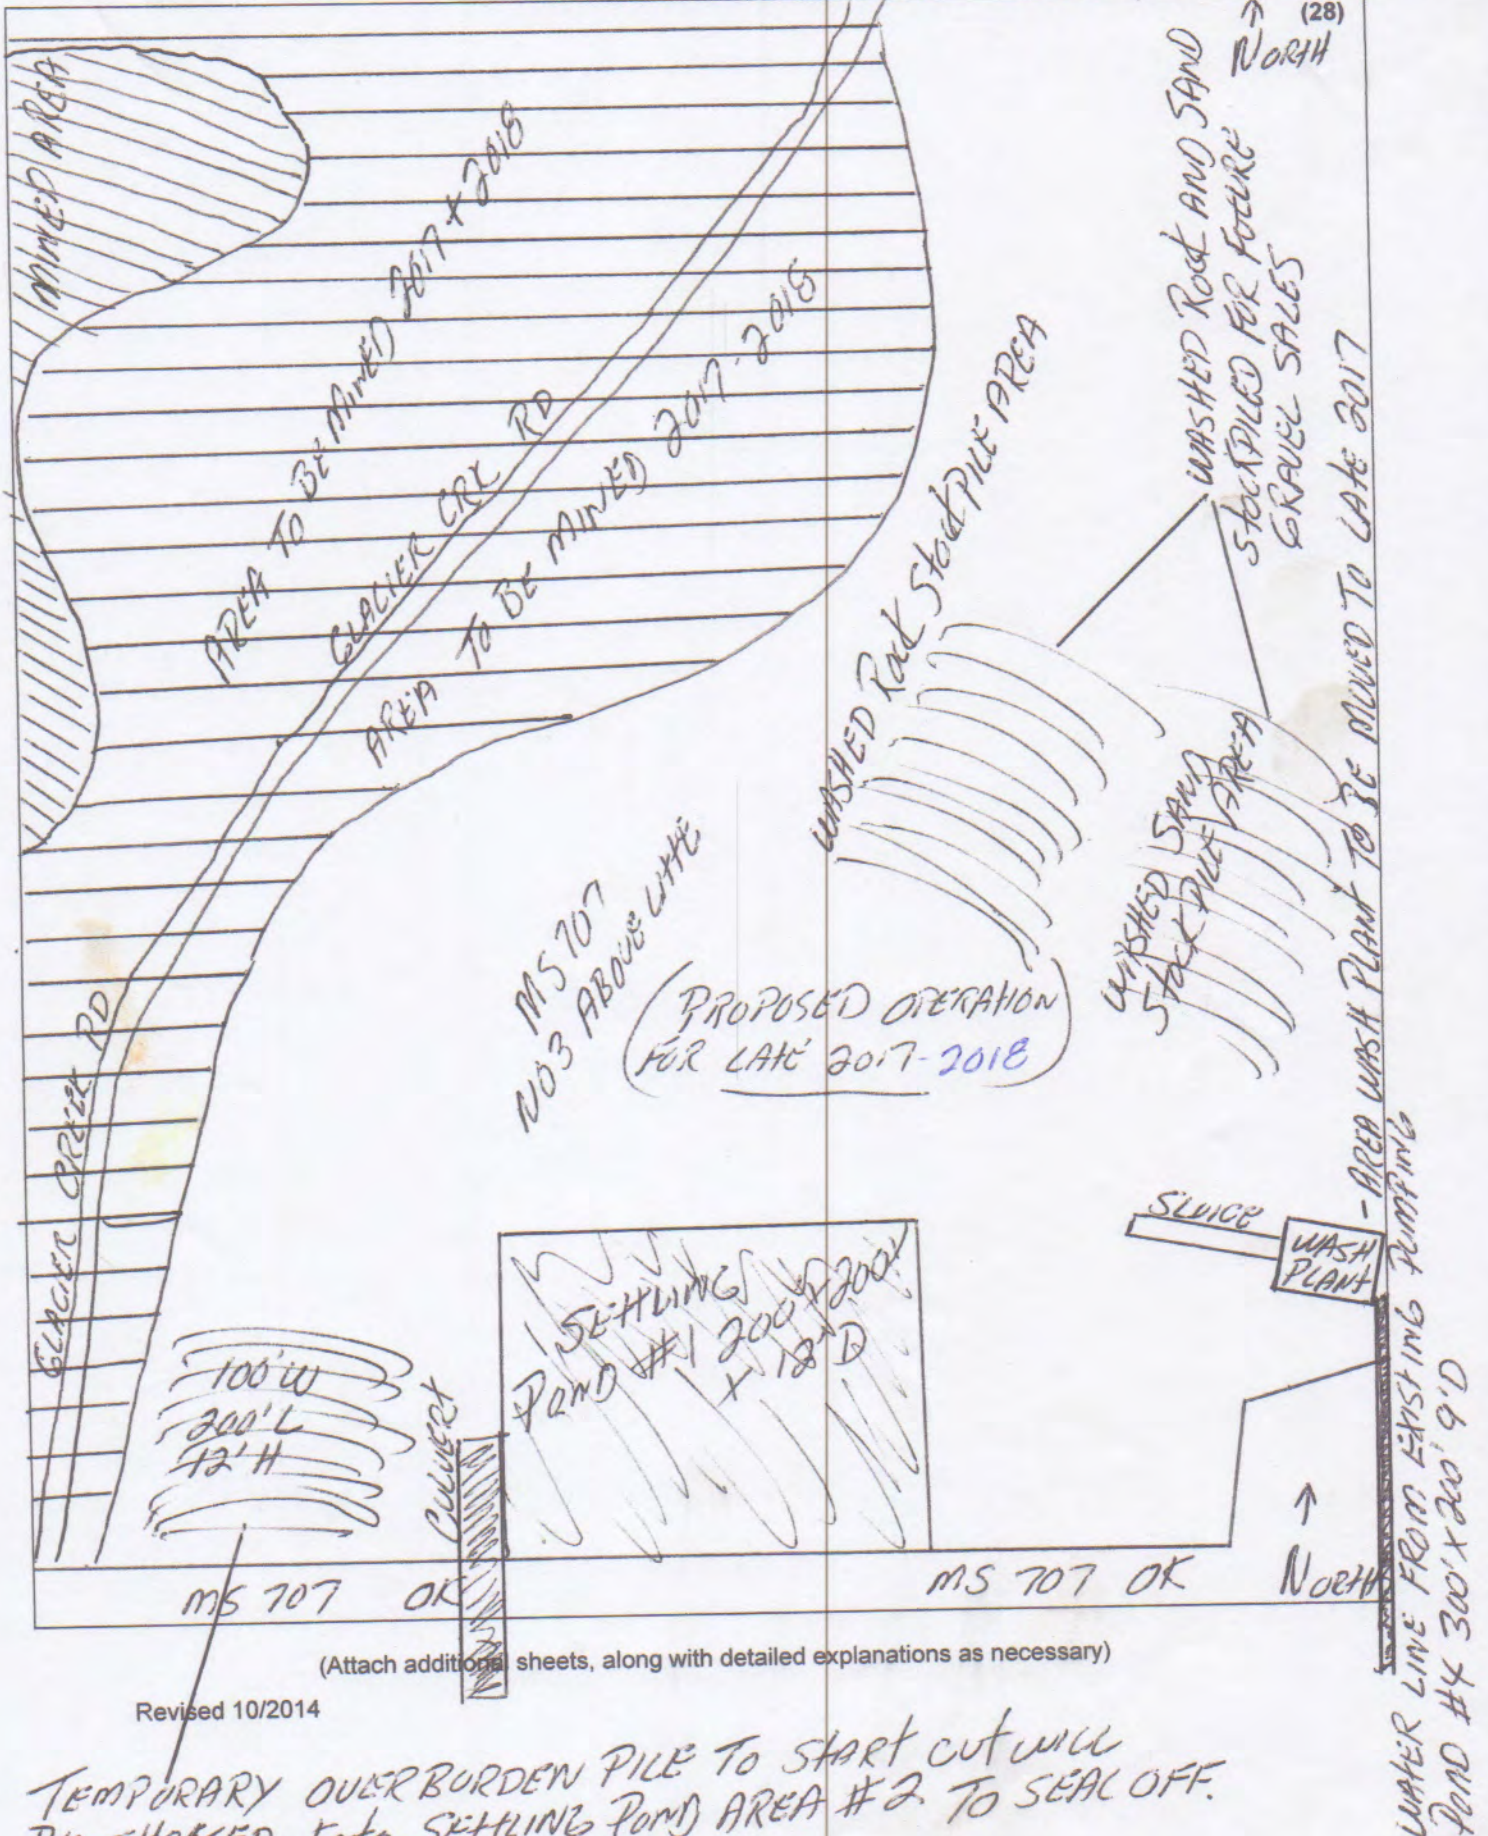 (28)
NORTH
MINED AREA
AREA TO BE MINED 2017 + 2018
GLACIER CRK RD
AREA TO BE MINED 2017-2018
WASHED ROCK STOCKPILE AREA
WASHED ROCK AND SAND
STOCKPILED FOR FUTURE
GRAVEL SALES
WASHED SAND
STOCKPILE AREA
- AREA WASH PLANT TO BE MOVED TO LATE 2017
MS 707
NO3 ABOVE LAKE
(PROPOSED OPERATION
FOR LATE 2017-2018)
GLACIER CREEK RD
SLUICE
WASH
PLANT
SETTLING
POND #1 200' X 200'
X 12' D
100' W
200' L
12' H
CULVERT
NORTH
MS 707 OK
MS 707 OK
WATER LINE FROM EXISTING PUMPING
POND #4 300' X 200' 9' D
(Attach additional sheets, along with detailed explanations as necessary)
Revised 10/2014
TEMPURARY OVERBURDEN PILE TO START CUT WILL
INTO SETTLING POND AREA #2. TO SEAL OFF.